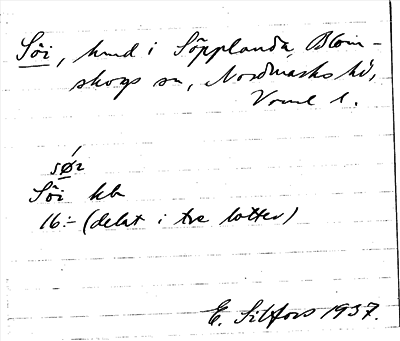 Söi, hmd i Söpplanda, Blom-
skogs sn, Nordmarks hd,
Vrml l.
sǿ̱z
Söi kb
16:- (delat i tre lotter)
E. Sitfors 1937.